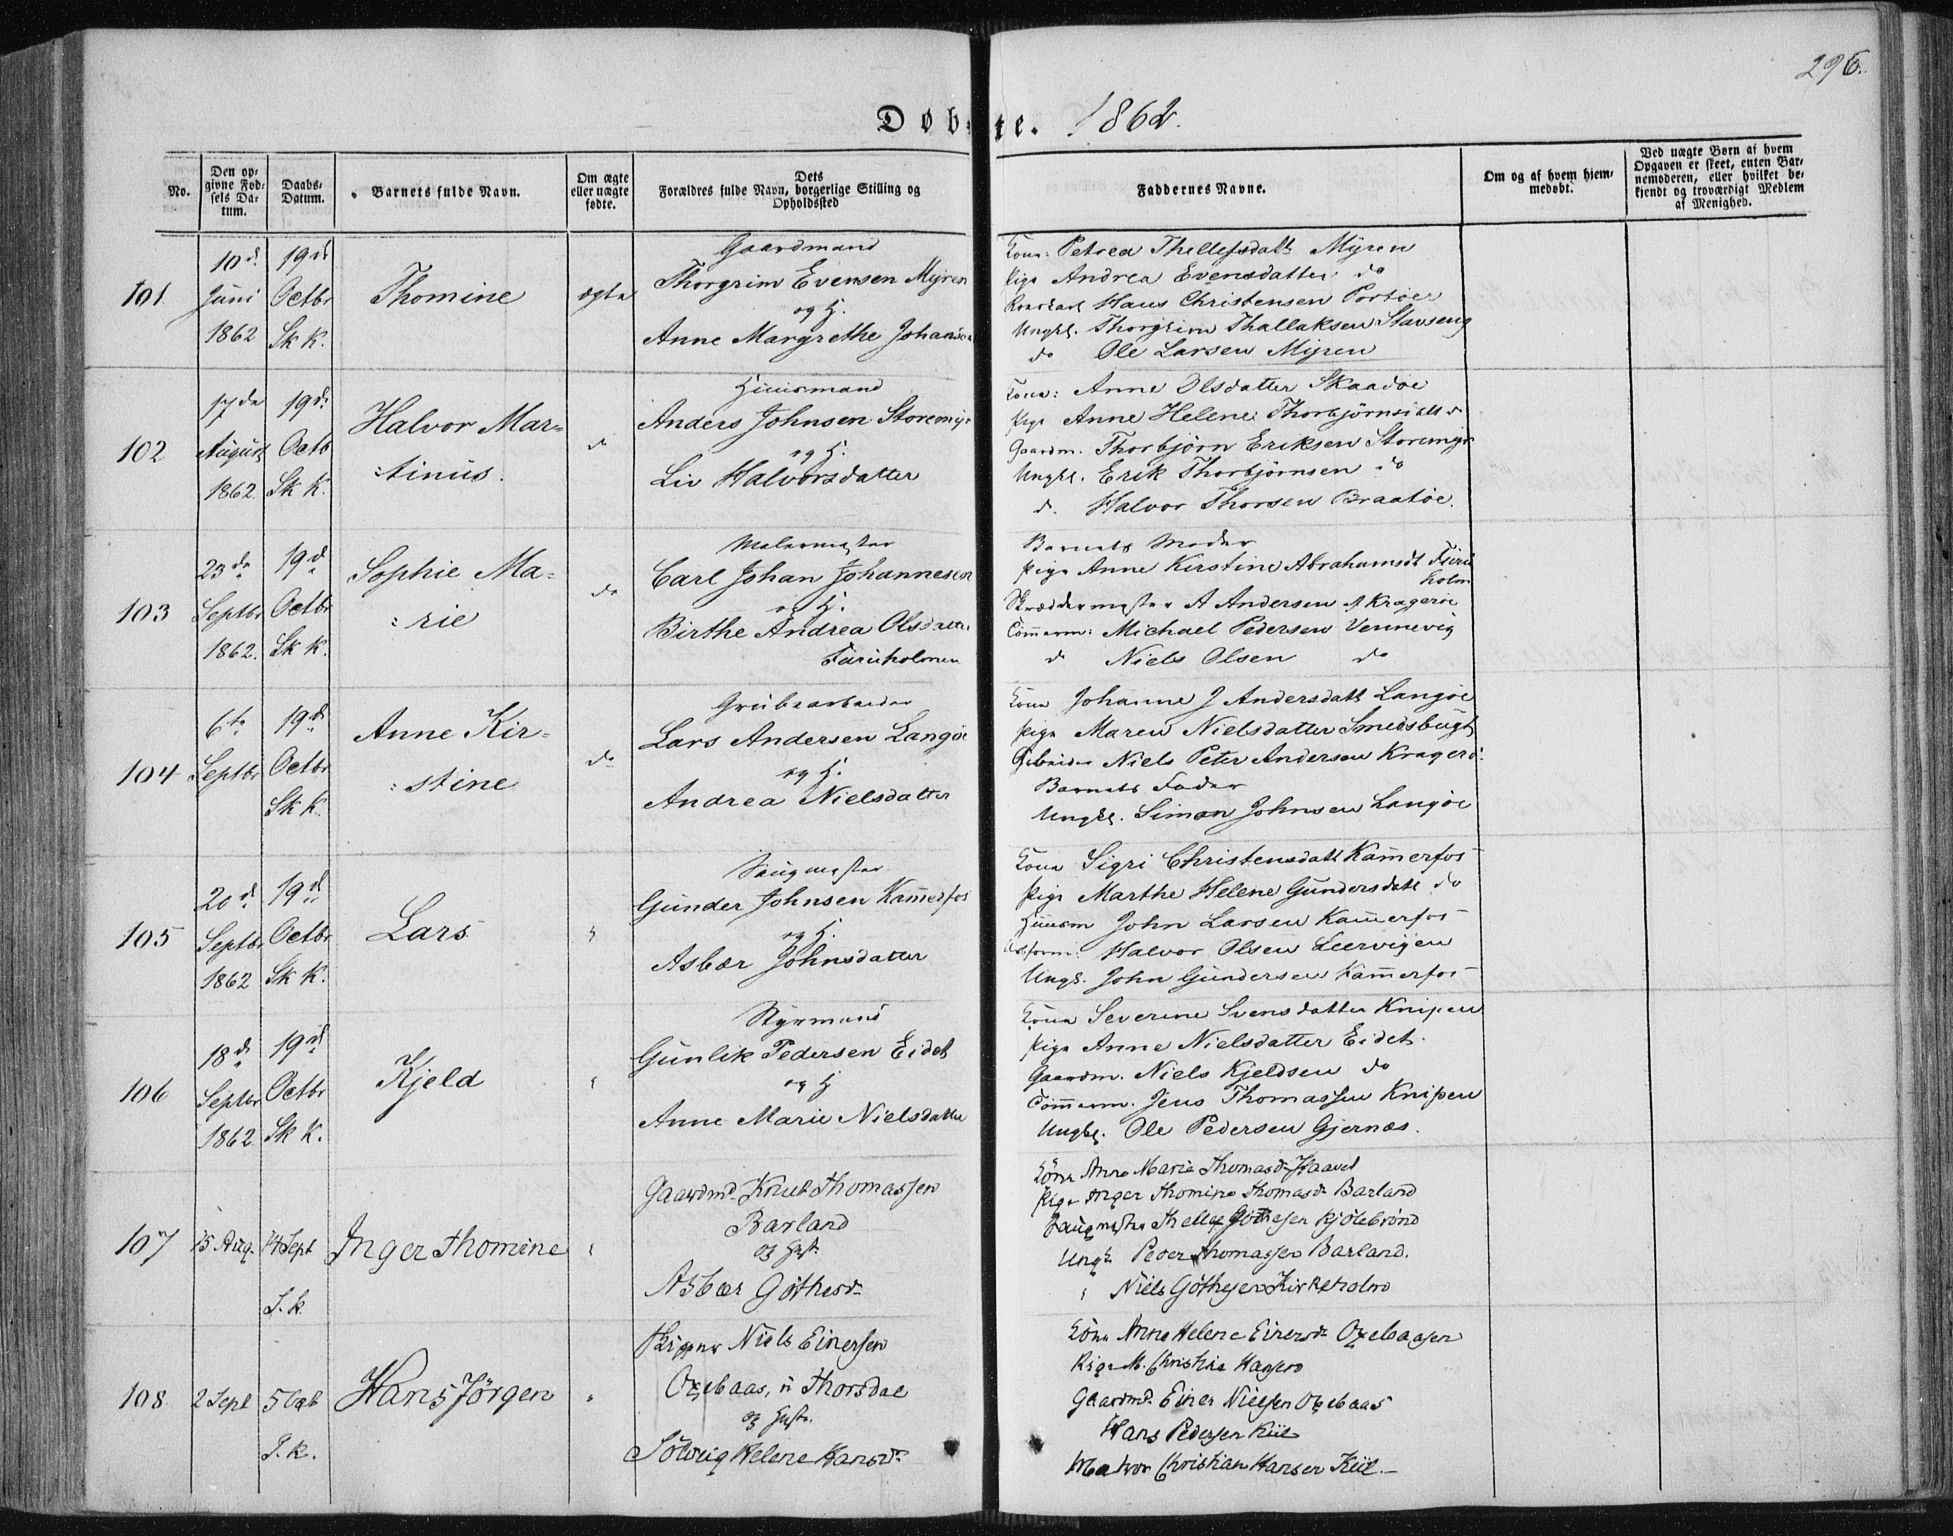 296.
Døbte. 1862.
No.
Den opgivne Fødsels Datum.
Daabs-Datum.
Barnets fulde Navn.
Om ægte eller uægte fødte.
Dets Forældres fulde Navn, borgerlige Stilling og Opholdssted
Faddernes Navne.
Om og af hvem hjemmedøbt.
Ved uægte Børn af hvem Opgaven er skeet, enten Barnemoderen, eller hvilket bekjendt og troværdigt Medlem af Menighed.
101
10d. Juni 1862
19d. Octbr Sk K.
Thomine
ægte
Gaardmand
Thorgrim Evensen Myren
og H.
Anne Margrethe Johans
Kone: Petrea Thellefsdatt Myren
Pige Andrea Evensdatter do
Hans Christensen Portøe
Ungk. Thorgrim Thallaksen Stavseng
do Ole Larsen Myren
102
17de August 1862.
19d. Octb Sk K.
Halvor Mar=
=tinus.
d
Huusmand
Anders Johnsen Storemyr
og H.
Liv Halvorsdatter
Kone: Anne Olsdatter Skaadøe
Pige Anne Helene Thorbjørnsdtt do
Gaardm. Thorbjørn Eriksen Storemyr
Ungk. Erik Thorbjørnsen do
d. Halvor Thorsen Braatøe.
103
23de Septbr 1862.
19d Octbr Sk K.
Sophie Ma=
=rie
do
Malermester
Carl Johan Johannesen
og H.
Birthe Andrea Olsdatter
Furuholmen
Barnets Moder
Pige Anne Kirstine Abrahamsdt Furu
holm
Skræddermester A Andersen af Kragerøe
Tømmerm: Michael Pedersen Vennevig
d Niels Olsen do
104
6te Septbr
19d. Octbr Sk K.
Anne Kir=
=stine
do
Grubearbeider
Lars Andersen Langøe
og H.
Andrea Nielsdatter
Kone Johanne J Andersdatt Langøe
Pige Maren Nielsdatter Smedsbugt
Arbeider Niels Peter Andersen Kragerø:
Barnets Fader
Ungk. Simon Johnsen Langøe
105
20d. Septbr 1862
19d. Octbr Sk K.
Lars
Saugmester
Gunder Johnsen Kammerfos
og H.
Asbær Johnsdatter
Kone Sigri Christensdatt Kammerfos
Pige Marthe Helene Gundersdatt do
Huusm John Larsen Kammerfos
Halvor Olsen Leervigen
Ungk. John Gundersen Kammerfos
106
18d. Septbr 1862
19d. Octbr Sk K.
Kjeld
Styrmand
Gunlik Pedersen Eidet
og H
Anne Marie Nielsdatter
Kone Severine Svensdatter Knipen
Pige Anne Nielsdatter Eidet.
Gaardm. Niels Kjeldsen do
Tømmerm. Jens Thomassen Knipen
Ungk. Ole Pedersen Gjernæs.
107
15 Aug.
14 Sept S.k.
Inger Thomine
Gaardmd. Knut Thomassen
Barland
og Hust.
Asbær Gøthesd.
Kone Anne Marie Thomasd. Haavet
Pige Inger Thomine Thomasd. Barland
Saugmester Thellef Gøthesen Kjølebrønd
Ungk Peder Thomassen Barland.
" Niels Gøthesen Kirkeholm
108.
2 Sept
5 Oct S.k.
Hans Jørgen
"
Skipper Niels Einersen
Oxebaas, i Thorsdal
og Hustr.
Sølvrig Helene Hansd.
Kone Anne Helene Einersd. Oxebaasen
Pige M. Christine Hansen
Gaardmd. Einer Nielsen Oxebaas
Hans Pedersen Kiil
Matros Christian Hansen Kiil.